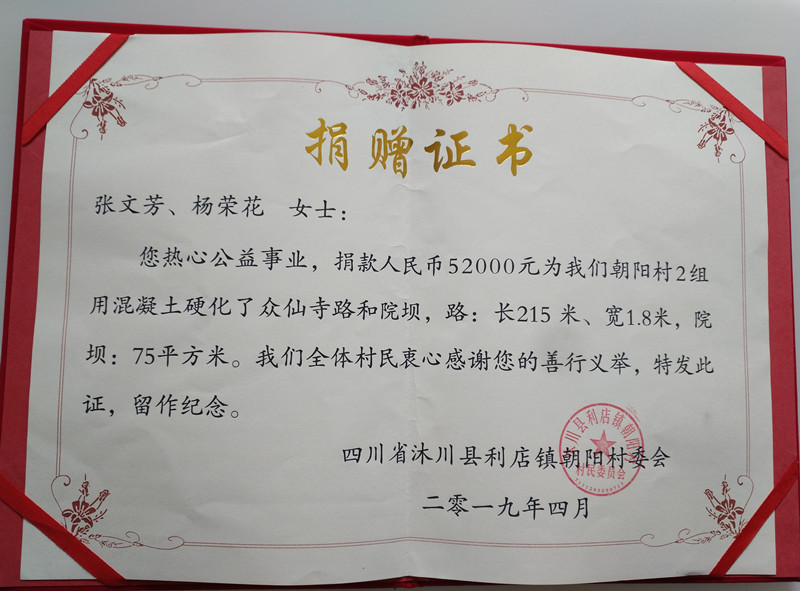 捐赠证书
张文芳、杨荣花 女士：
您热心公益事业，捐款人民币52000元为我们朝阳村2组
用混凝土硬化了众仙寺路和院坝，路：长215 米、宽1.8米，院
坝：75平方米。我们全体村民衷心感谢您的善行义举，特发此
证，留作纪念。
四川省沐川县利店镇朝阳村委会
二零一九年四月
川县利店镇朝阳
村民委员会